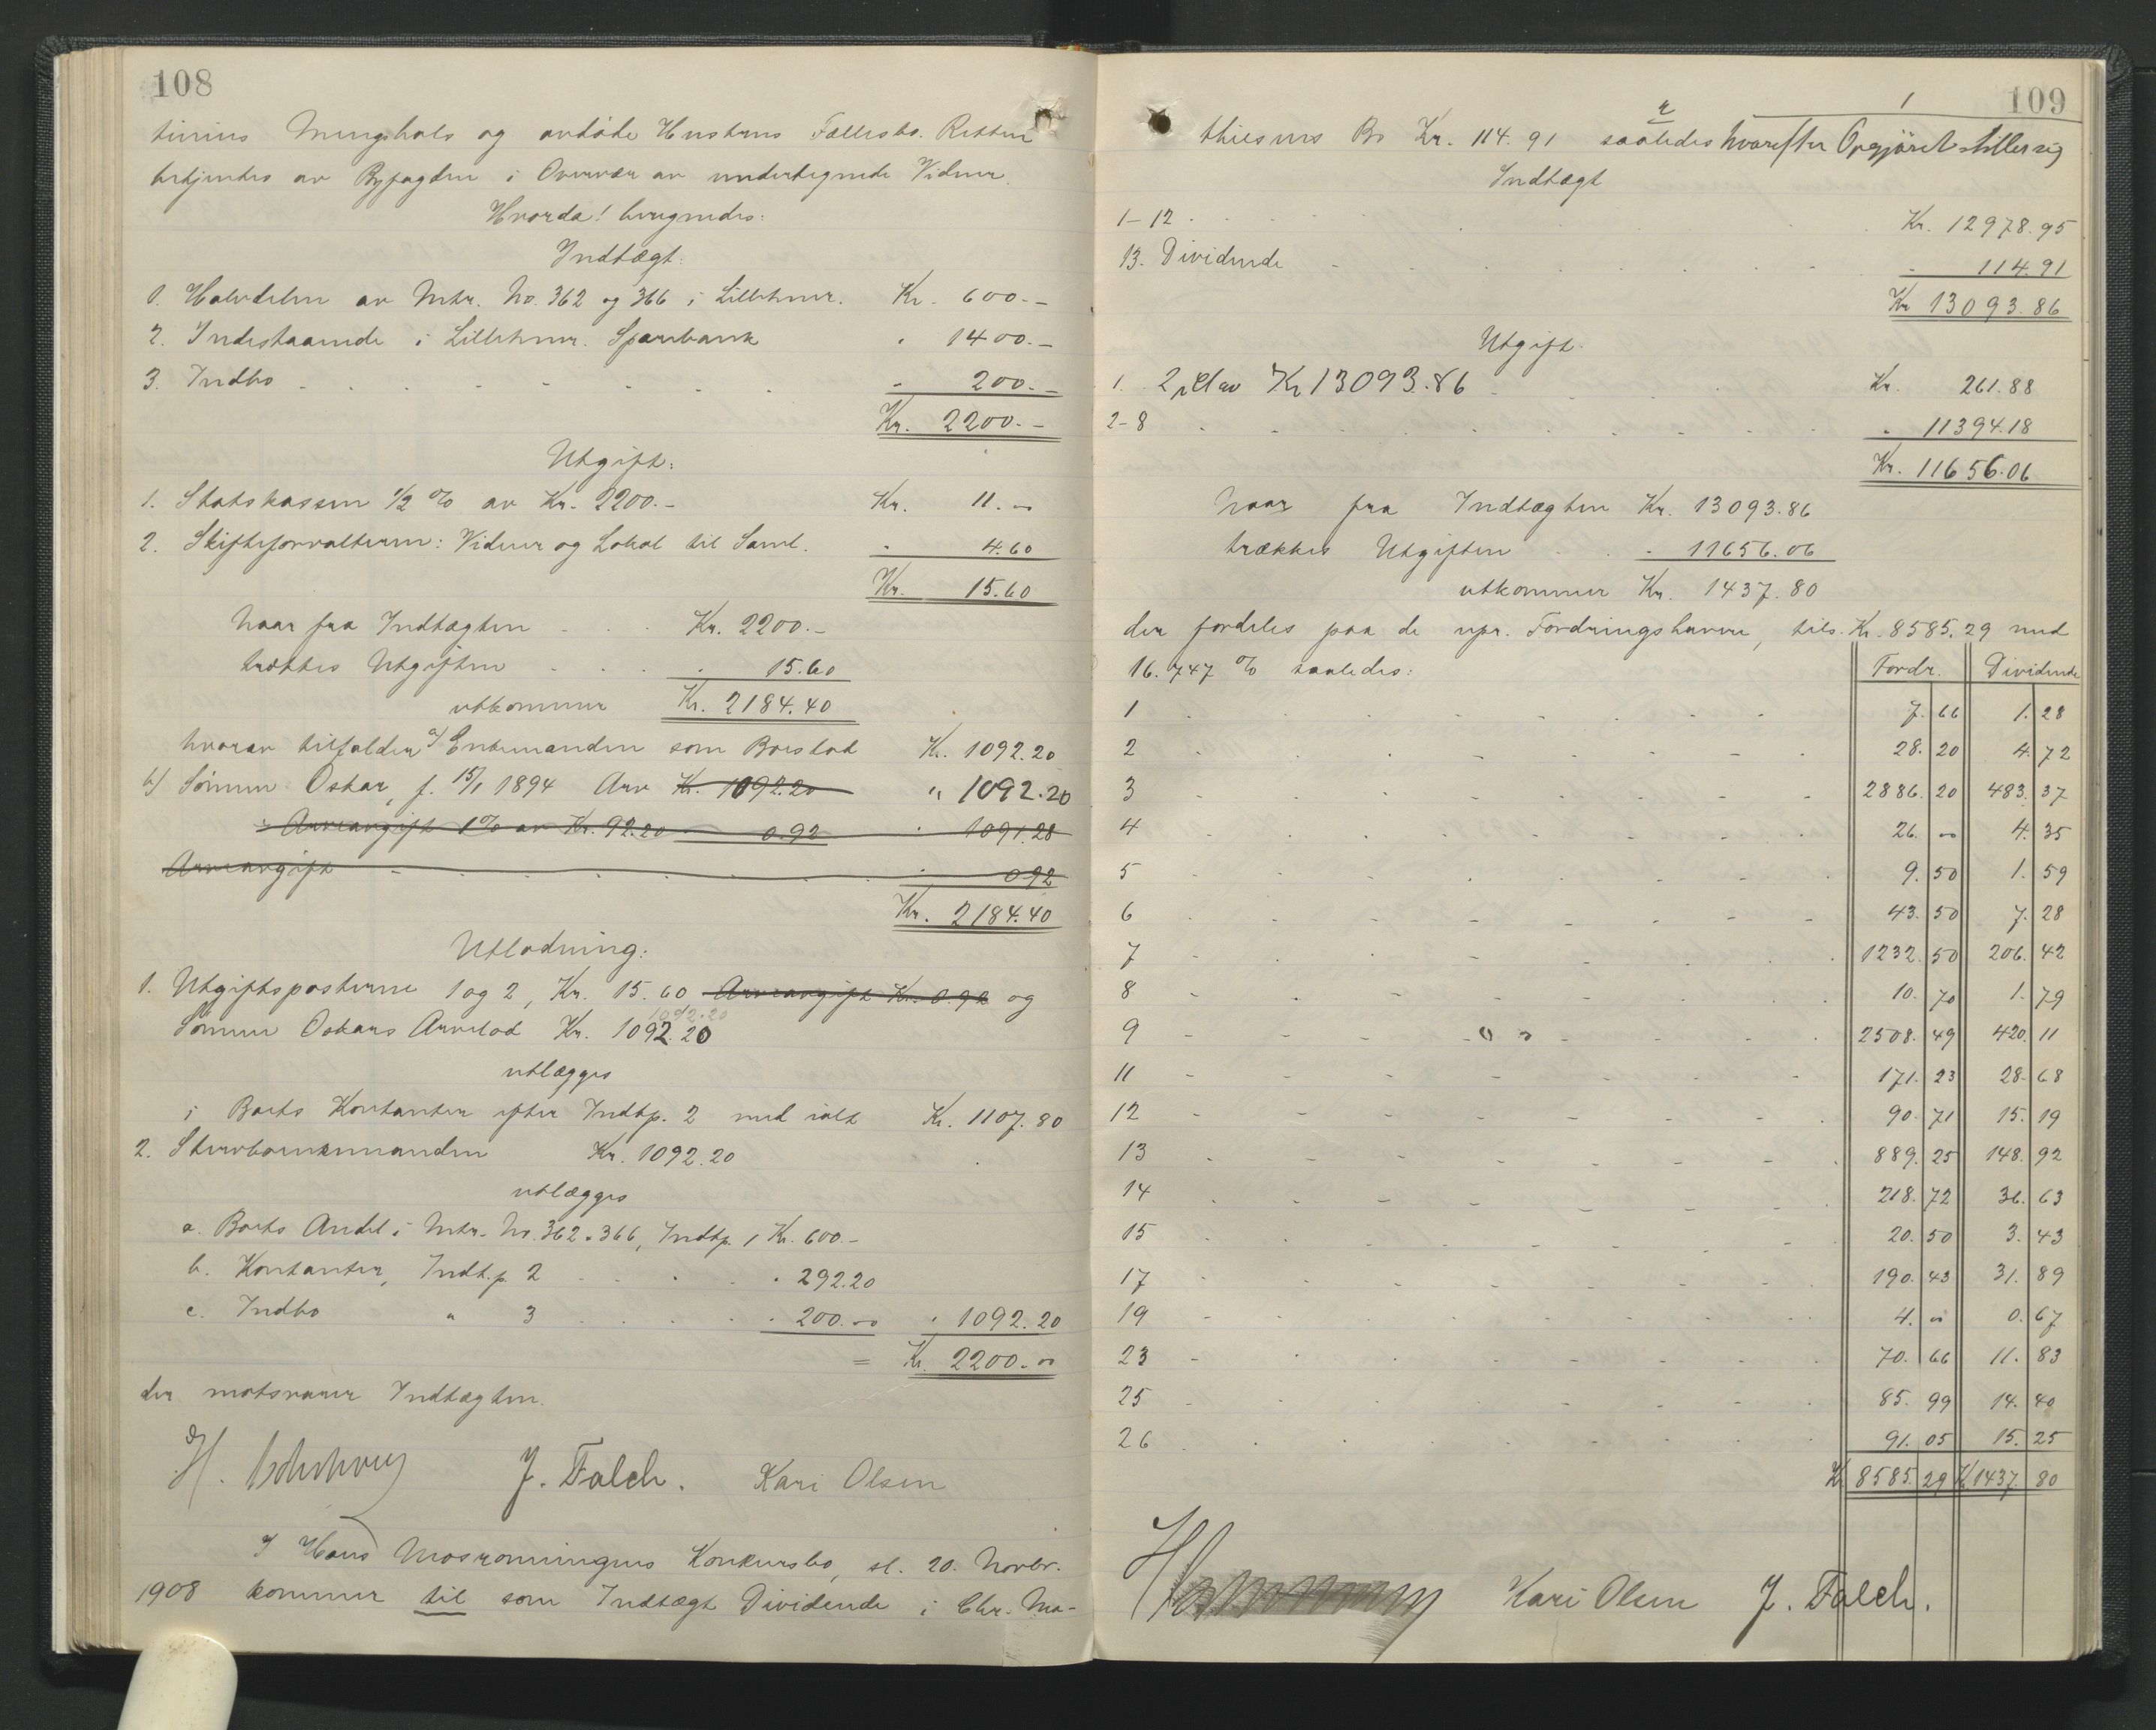 108
tinius Mengshols og avdøde Hustrus Fællesbo. Retten
betjentes av Byfogden i Overvær av undertegnede Vidner.
Hvorda! beregnedes:
Indtægt:
1. Halvdelen av Mtr. No. 362 og 366 i Lillehmr. Kr. 600.-
2. Indestaaende i Lillehmr. Sparebank " 1400.-
3. Indbo - 200.-
Kr. 2200.-
Utgift:
1. Statskassen 1/2 % av Kr. 2200.- Kr. 11.00
2. Skifteforvalteren: Vidner og Lokal til Saml. - 4.60
Kr. 15.60
Naar fra Indtægten Kr. 2200.-
trækkes Utgiften 15.60
utkommer Kr. 2184.40
hvorav tilfalder a) Enkemanden som Boeslod Kr. 1092.20
b) Sønnen Oskar, f. 15/1 1894 Arv Kr. 1092.20 " 1092.20
÷ Arveavgift 1% av Kr. 92.20 0.92 1091.28
Arveavgift 0.92
Kr. 2184.40
Utlodning:
1. Utgiftsposterne 1 og 2, Kr. 15.60, Arveavgift Kr. 0.92 og
1092.20
Sønnen Oskars Arvelod Kr. 1092.20
utlægges
i Boets Kontanter efter Indtp. 2 med ialt Kr. 1107.80
2. Stervboenkemanden Kr. 1092.20
utlægges
a. Boets Andel i Mtr. No. 362 " 366, Indtp. 1 Kr. 600.-
b. Kontanter, Indt.p. 2 " 292.20
c. Indbo " 3 " 200.00 " 1092.20
= Kr. 2200.00
der motsvarer Indtægten.
J. Falch. Kari Olsen
I Hans Mosrønningens Konkursbo, sl. 20. Novbr.
1908 kommer til som Indtægt Dividende i Chr. Ma-
1 109
thiesens Bo Kr. 114.91 saaledes hvorefter Opgjøret stiller sig
Indtægt
1-12 Kr. 12978.95
13. Dividende - 114.91
Kr 13093.86
Utgift.
1. 2 pct av Kr 13093.86 Kr. 261.88
2-8 " 11394.18
Kr. 11656.06
Naar fra Indtægten Kr. 13093.86
trækkes Utgiften - 11656.06
utkommer Kr. 1437.80
der fordeles paa de upr. Fordringshavere, tils. Kr. 8585.29 med
16.747 % saaledes: Fordr. Dividende
1 7.66 1.28
2 28.20 4.72
3 2886.20 483.37
4 26.00 4.35
5 9.50 1.59
6 43.50 7.28
7 1232.50 206.42
8 10.70 1.79
9 2508.49 420.11
11 171.23 28.68
12 90.71 15.19
13 889.25 148.92
14 218.72 36.63
15 20.50 3.43
17 190.43 31.89
19 4.00 0.67
23 70.66 11.83
25 85.99 14.40
26 91.05 15.25
Kr 8585.29 Kr 1437.80
Kari Olsen J. Falch.